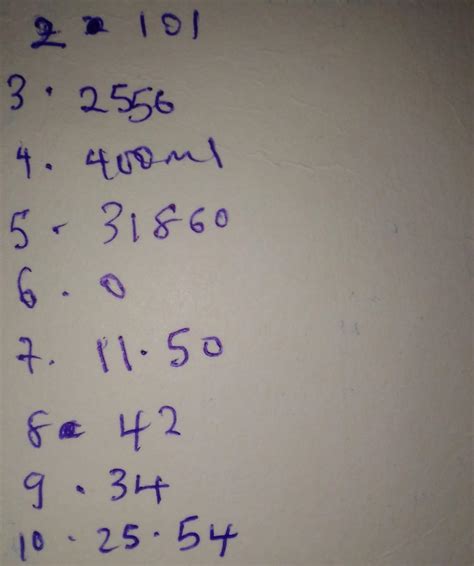 2 - 101
3 . 2556
4 . 400ml
5 - 31860
6 . 0
7 . 11.50
8 - 42
9 . 34
10 . 25.54